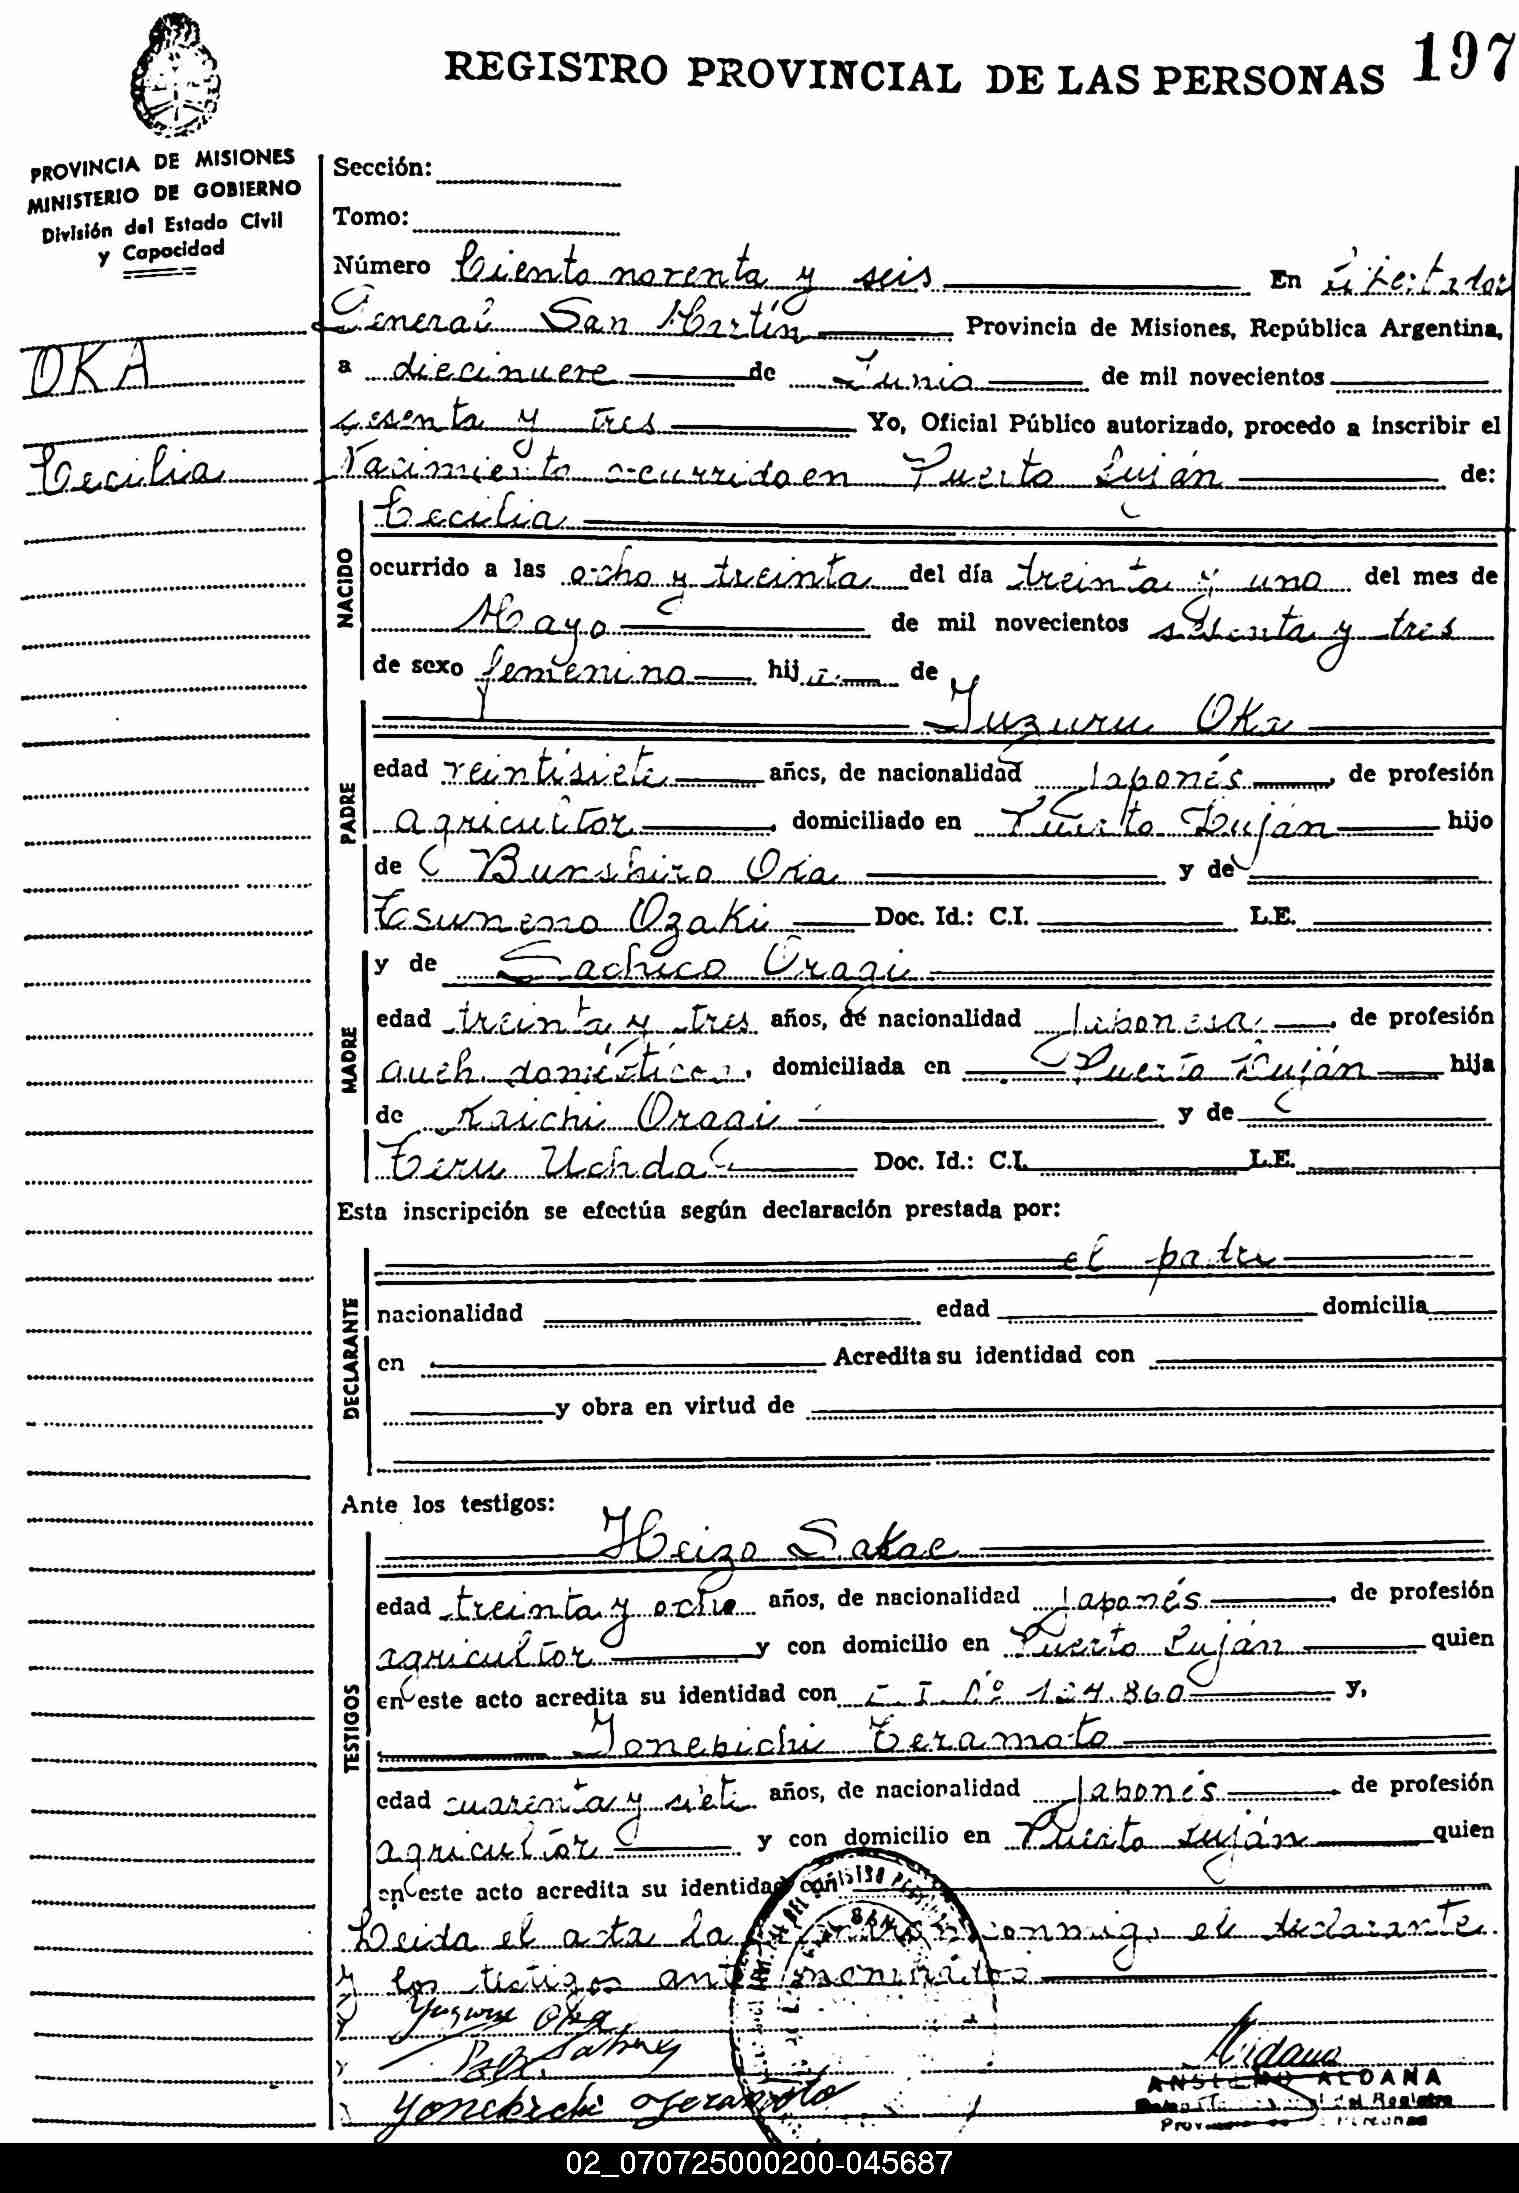 REGISTRO PROVINCIAL DE LAS PERSONAS 197
PROVINCIA DE MISIONES
MINISTERIO DE GOBIERNO
División del Estado Civil
y Capacidad
OKA
Cecilia
Sección:
Tomo:
Número Ciento noventa y seis En Libertador
General San Martín Provincia de Misiones, República Argentina,
a diecinueve de Junio de mil novecientos
sesenta y tres Yo, Oficial Público autorizado, procedo a inscribir el
Nacimiento ocurrido en Puerto Luján de:
NACIDO
Cecilia
ocurrido a las ocho y treinta del día treinta y uno del mes de
Mayo de mil novecientos sesenta y tres
de sexo femenino hija de
PADRE
Yuzuru Oka
edad veintisiete años, de nacionalidad Japonés, de profesión
agricultor, domiciliado en Puerto Luján hijo
de Bunshiro Oka y de
Tsuneno Ozaki Doc. Id.: C.I. L.E.
MADRE
y de Sachico Uragi
edad treinta y tres años, de nacionalidad Japonesa, de profesión
queh. domésticos, domiciliada en Puerto Luján hija
de Kaichi Uragi y de
Teru Uchda Doc. Id.: C.I. L.E.
Esta inscripción se efectúa según declaración prestada por:
DECLARANTE
el padre
nacionalidad edad domicilia
en Acredita su identidad con
y obra en virtud de
Ante los testigos:
TESTIGOS
Heizo Sakae
edad treinta y ocho años, de nacionalidad Japonés, de profesión
agricultor y con domicilio en Puerto Luján quien
en este acto acredita su identidad con C.I. Nº 124.860 y,
Yonekichi Teramoto
edad cuarenta y siete años, de nacionalidad Japonés, de profesión
agricultor y con domicilio en Puerto Luján quien
en este acto acredita su identidad con
Leida el acta la firman conmigo el declarante
y los testigos ante nombrados
Yuzuru Oka
Yonekichi Teramoto
Aldana
ANSELMO ALDANA
del Registro
02_070725000200-045687